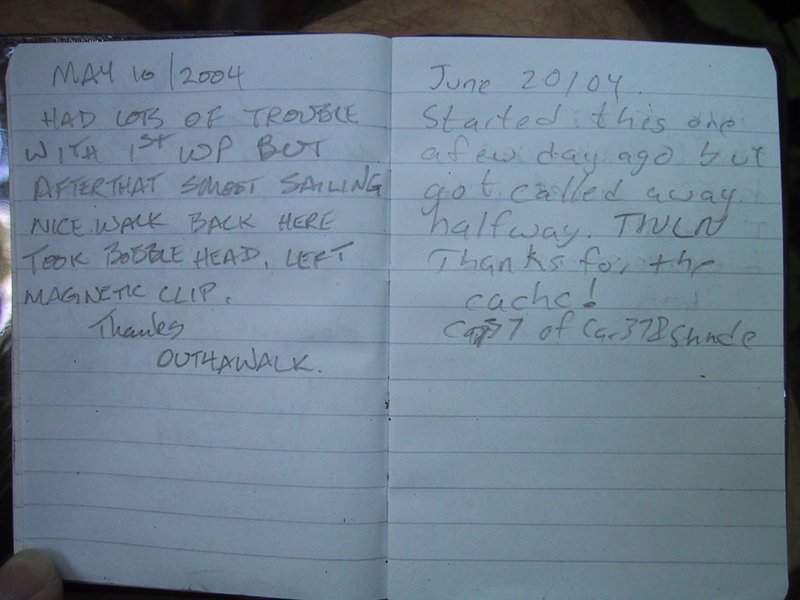 MAY 10/2004
HAD LOTS OF TROUBLE
WITH 1ST WP BUT
AFTERTHAT SMOOT SAILING
NICE WALK BACK HERE
TOOK BOBBLE HEAD, LEFT
MAGNETIC CLIP.
Thanks
OUTH4AWALK.
June 20/04.
Started this one
a few day ago but
got called away
halfway. TNLN
Thanks for the
cache!
of